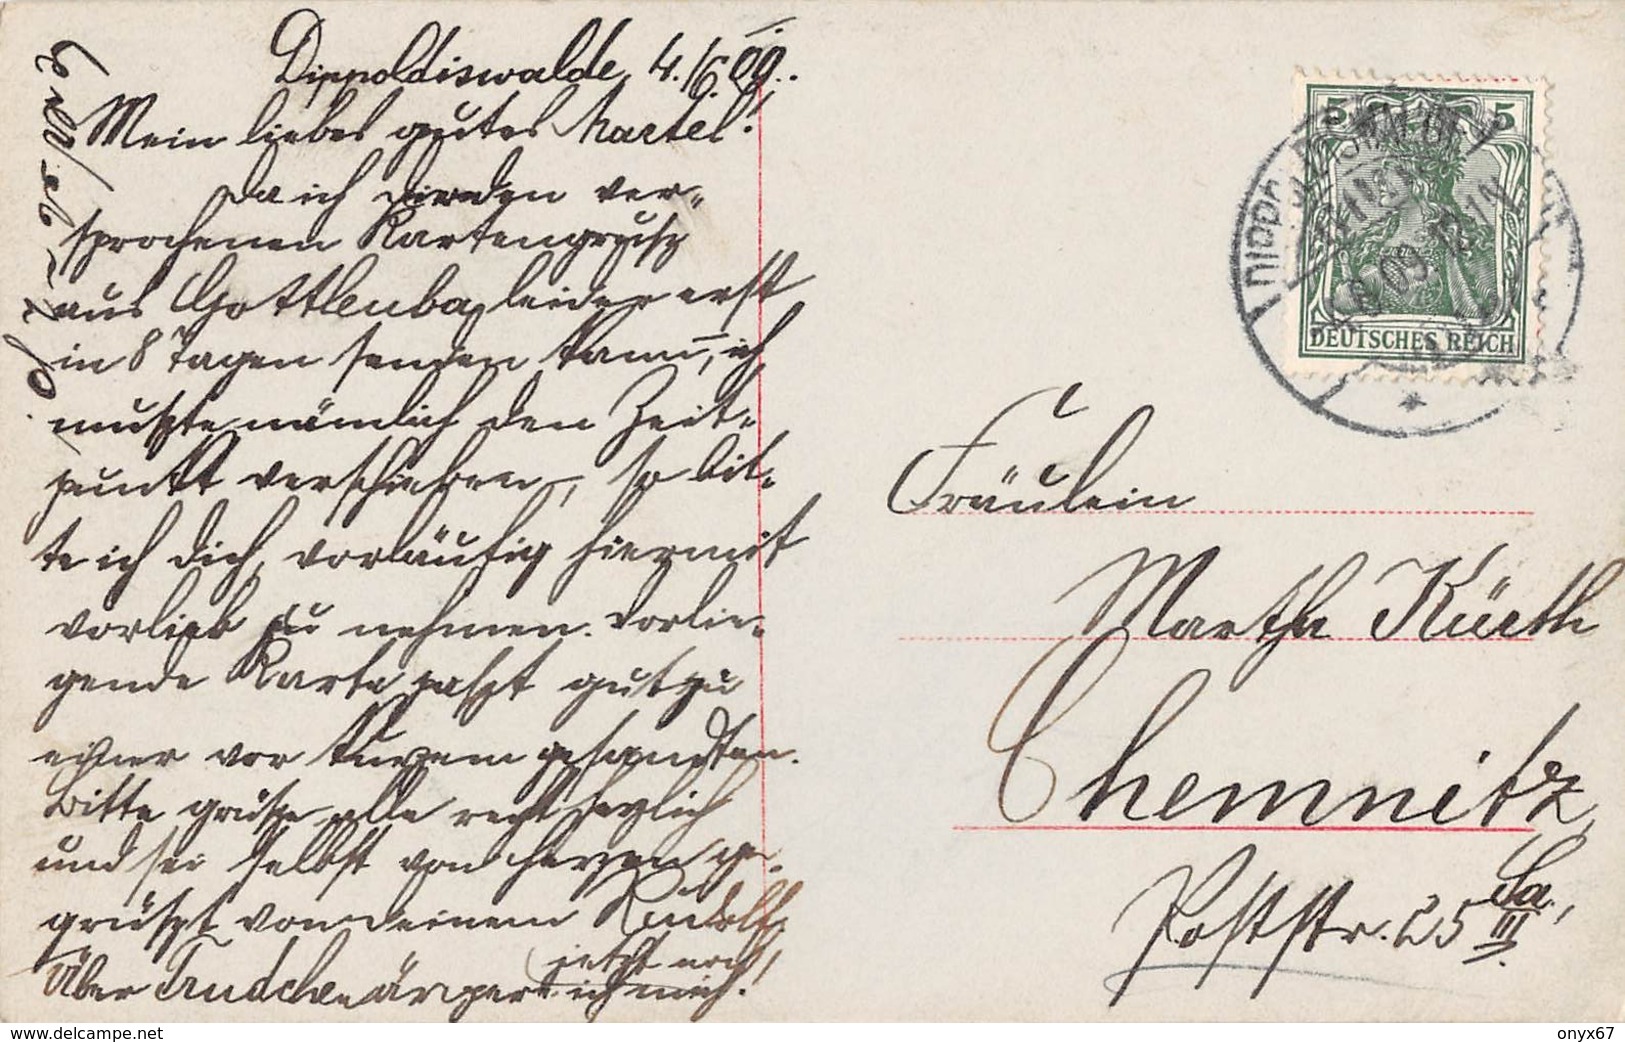 Dippoldiswalde, 4./6.09.
Mein liebes gutes Martel!
Da ich dir den ver-
sprochenen Kartengrusz
aus Gottleuba leider erst
in 8 Tagen senden kann, ich
muszte nämlich den Zeit-
punkt verschieben, so bit-
te ich dich, vorläufig hiermit
vorlieb zu nehmen. Vorlie-
gende Karte paszt gut zu
einer vor kurzem gesandten.
Bitte grüsze alle recht herzlich
und sei selbst von Herzen ge-
grüszt von deinem Rudolf.
Über Trudchen ärgere ich mich
jetzt noch!
5 5
DEUTSCHES REICH
Fräulein
Martha Kürth
Chemnitz,
Sa.,
Poststr. 25 III.
www.delcampe.net
onyx67